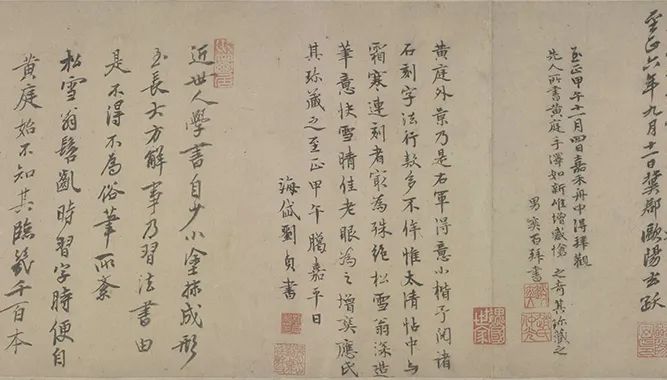 至正六年九月十二日冀郡歐陽玄跋
至正甲午十一月四日嘉禾舟中得拜觀
先人所書黄庭手澤如新惟增感愴
男奕百拜書
之奇其珎藏之
黄庭外景乃是右軍得意小楷予閱諸
石刻字法行款多不侔惟太清帖中与
霜寒連刻者寂為殊絶松雪翁深造
華意快雪晴佳老眼為之增奕應氏
其珎藏之至正甲午臘嘉平日
海岱劉貞書
近世人學書自少小塗抹成形
至長大方解事乃習法書由
是不得不為俗筆所紊
松雪翁髫齔時習字時便自
黄庭始不知其臨幾千百本